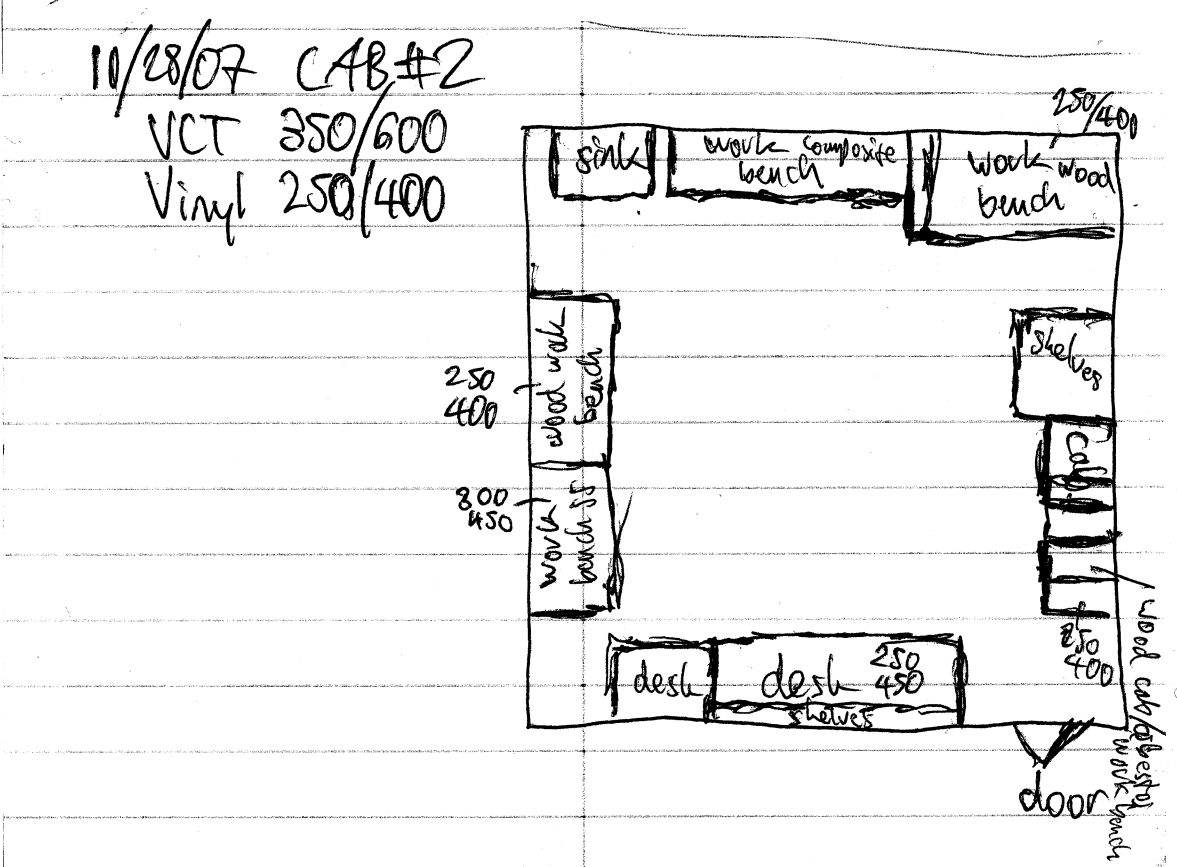 10/28/07 CAB#2
VCT 350/600
Vinyl 250/400
250/400
sink
work composite
bench
work wood
bench
shelves
wood work
bench
250
400
Cab
work
bench SS
800
450
wood cab/asbestos
work bench
250
400
desk
desk
250
450
shelves
door